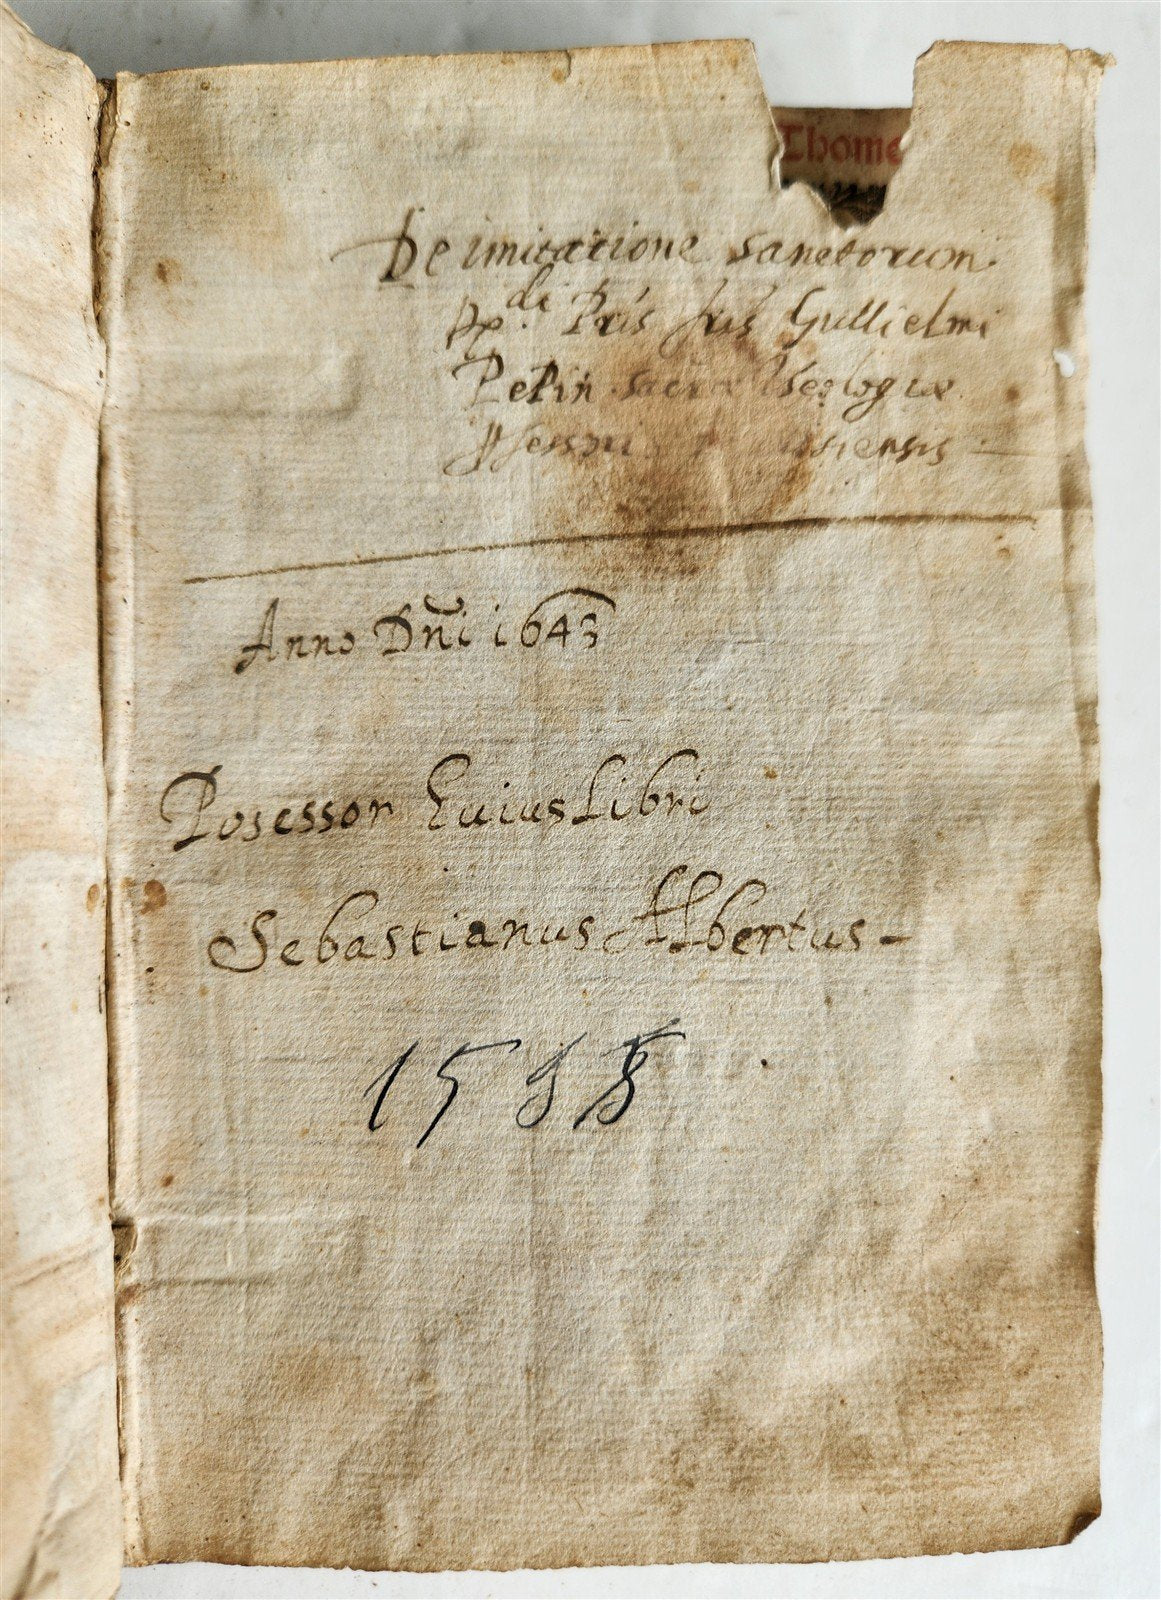 Thome
De imitatione sanctorum
Rdi. Pris fris Gullielmi
Pepin sacræ theologiæ
siensis
Anno Dñi 1643
Posessor Euius Libri
Sebastianus Albertus -
1588